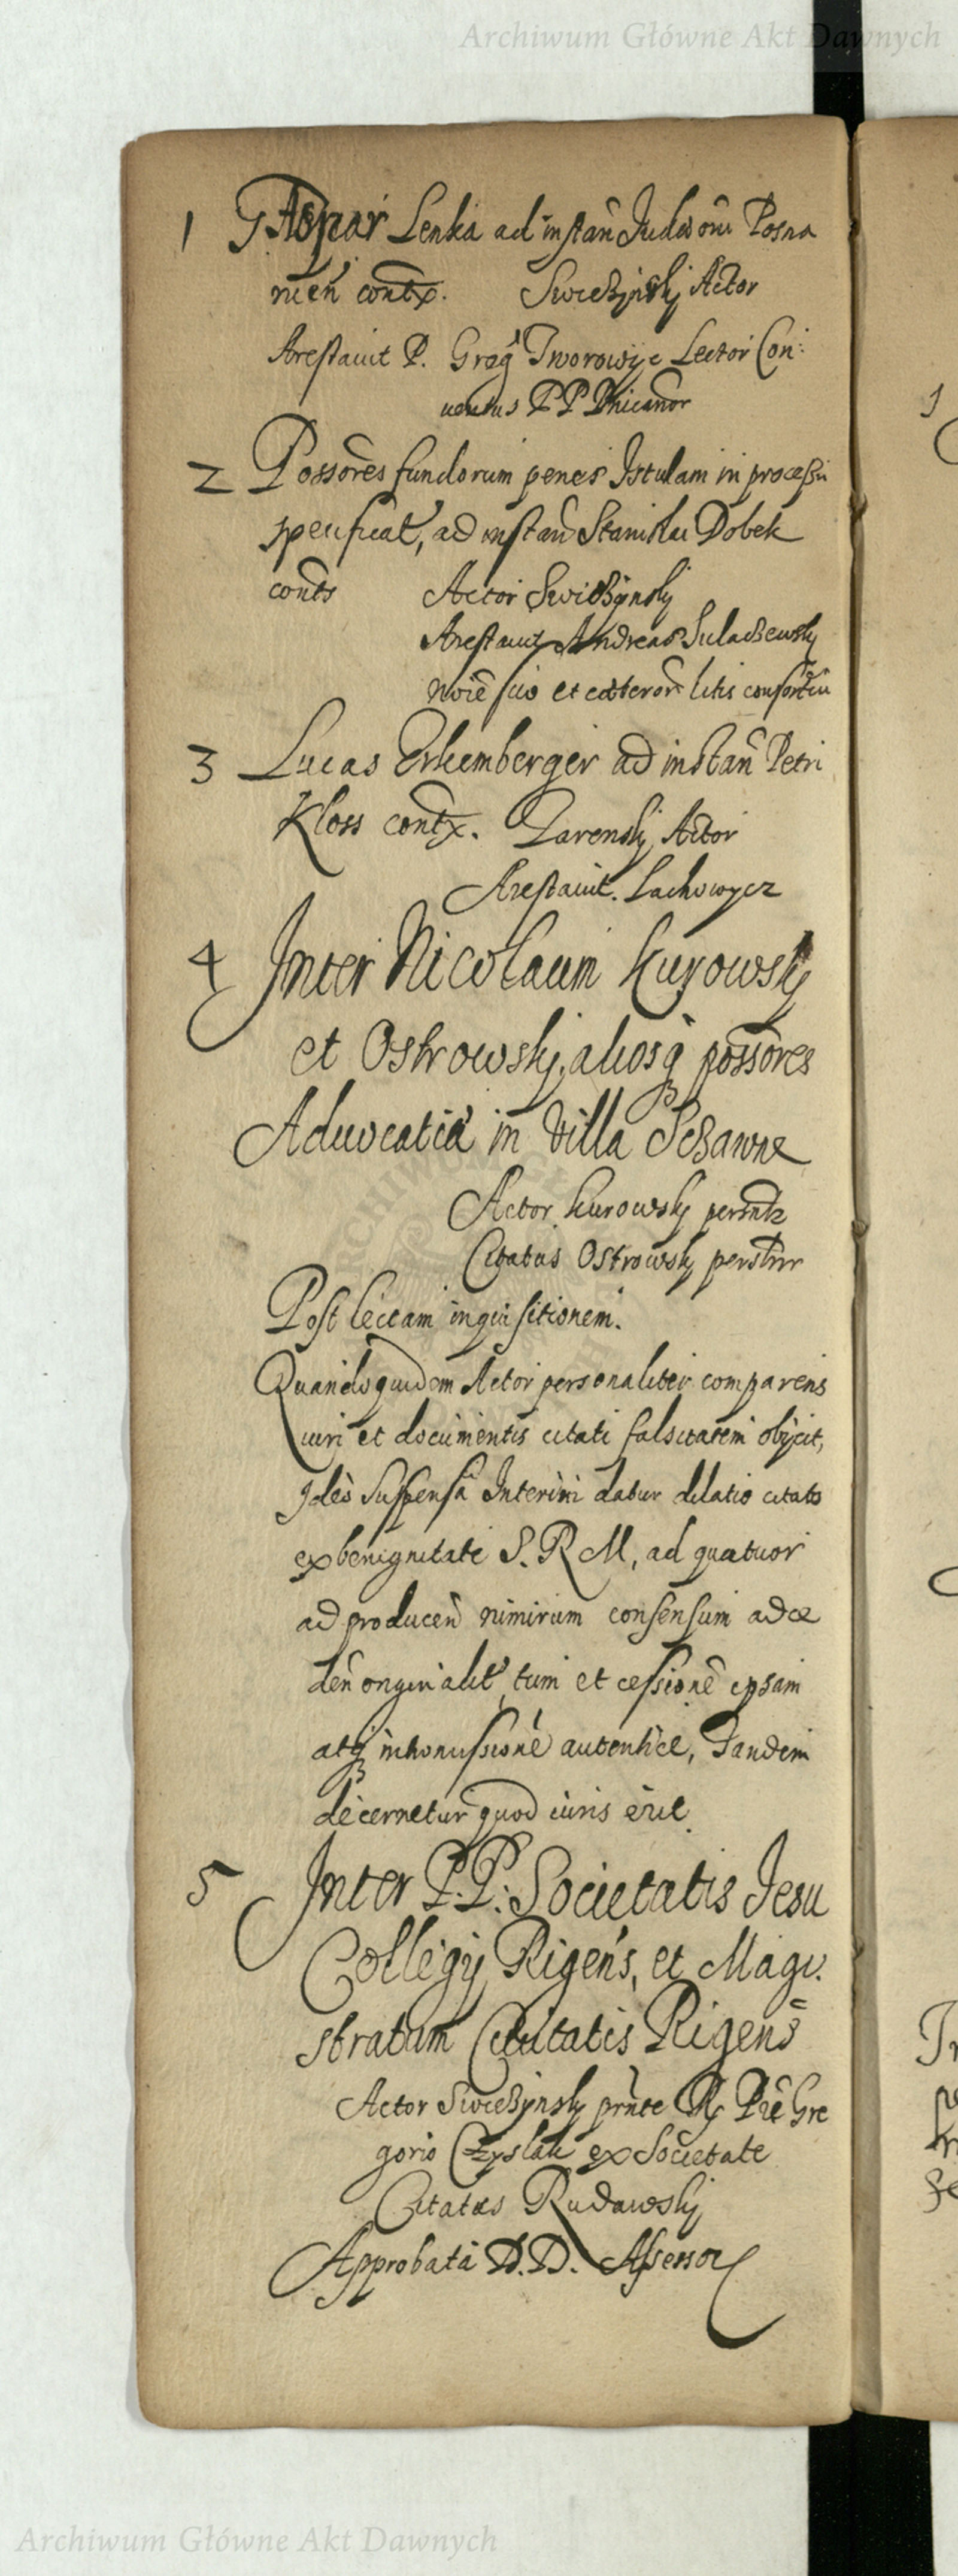 Archiwum Główne Akt Dawnych
1 Gaspar Lenka ad instan̄ Judæorū Posna
nien̄ contx. Swiecżynskj Actor
Arestavit P. Greg' Tworowije Lector Con:
ventus PP Dnicanor
2 Possōres fundorum penes Istulam in processu
specificat', ad instan̄ Stanislai Dobek
conts Actor Swieżynskj
Arestavit Andreas Sulaczewskj
noīe suo et cæteror litis consortiū
3 Lucas Erkemberger ad instan̄ Petri
Kloss contx. Zarenskj Actor
Arestavit. Lachowycz
4 Inter Nicolaum Kurowskj
et Ostrowskj, aliosq possōres
Advocatiæ in Villa Sczawne
Actor Kurowskj persntr
Citatus Ostrowskj perslnr
Post lectam inquisitionem.
Quandoquidem Actor personaliter comparens
iuri et documentis citati falsitatem obijcit,
Ideo suspensa Interim datur dilatio citato
ex benignitate S. R M, ad quatuor
ad producen̄ nimirum consensum ad ce
den̄ originalit', tum et cessionē ipsam
atq intromissionē autentice, Tandem
decernetur quod iuris erit.
5 Inter P.P. Societatis Jesu
Collegij Rigens, et Magi.
stratum Civitatis Rigens
Actor Swieczynskj prnte R Prē Gre
gorio Czyslak ex Societate
Citatus Rudawskj
Approbata D.D. Assessor
Archiwum Główne Akt Dawnych